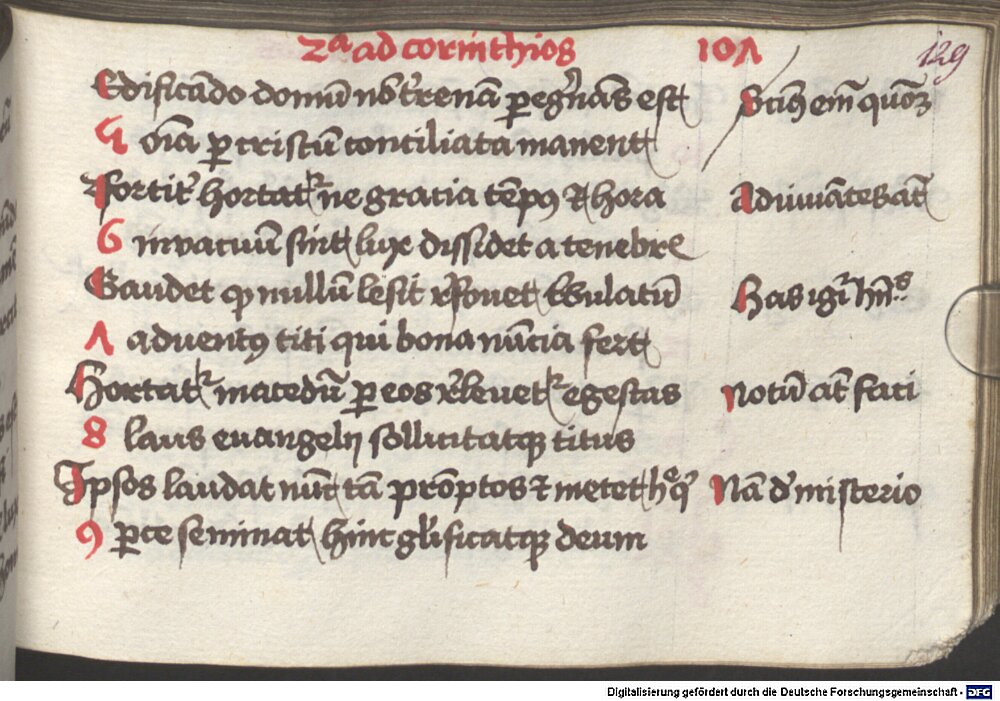 2ª ad corinthios 107 129
Edificãdo domũ nob̃ t̃renã peg̃nãs est Scim̃ em̃ quoʒ̃
5 oĩa p cristũ conciliata manent
Fortit̃ hortat᷑ ne gracia tẽpꝯ & hora Adiuuãtes aũt
6 in vacuũ sint lux dissidet a tenebre
Gaudet ꝙ nullũ lesit fouet Has igr̃ hñs
7 adventꝯ titi qui bona nũcia fert
Hortat᷑ macedũ p eos releuet᷑ egestas Notũ aũt faci
8 laus euangelij sollicitatqꝫ titus
Ipsos laudat nũc tã prõptos & metet hͦ qͥ Nã d̕ misterio
9 pce seminat hinc gl̕ificatqꝫ deum
Digitalisierung gefördert durch die Deutsche Forschungsgemeinschaft - DFG